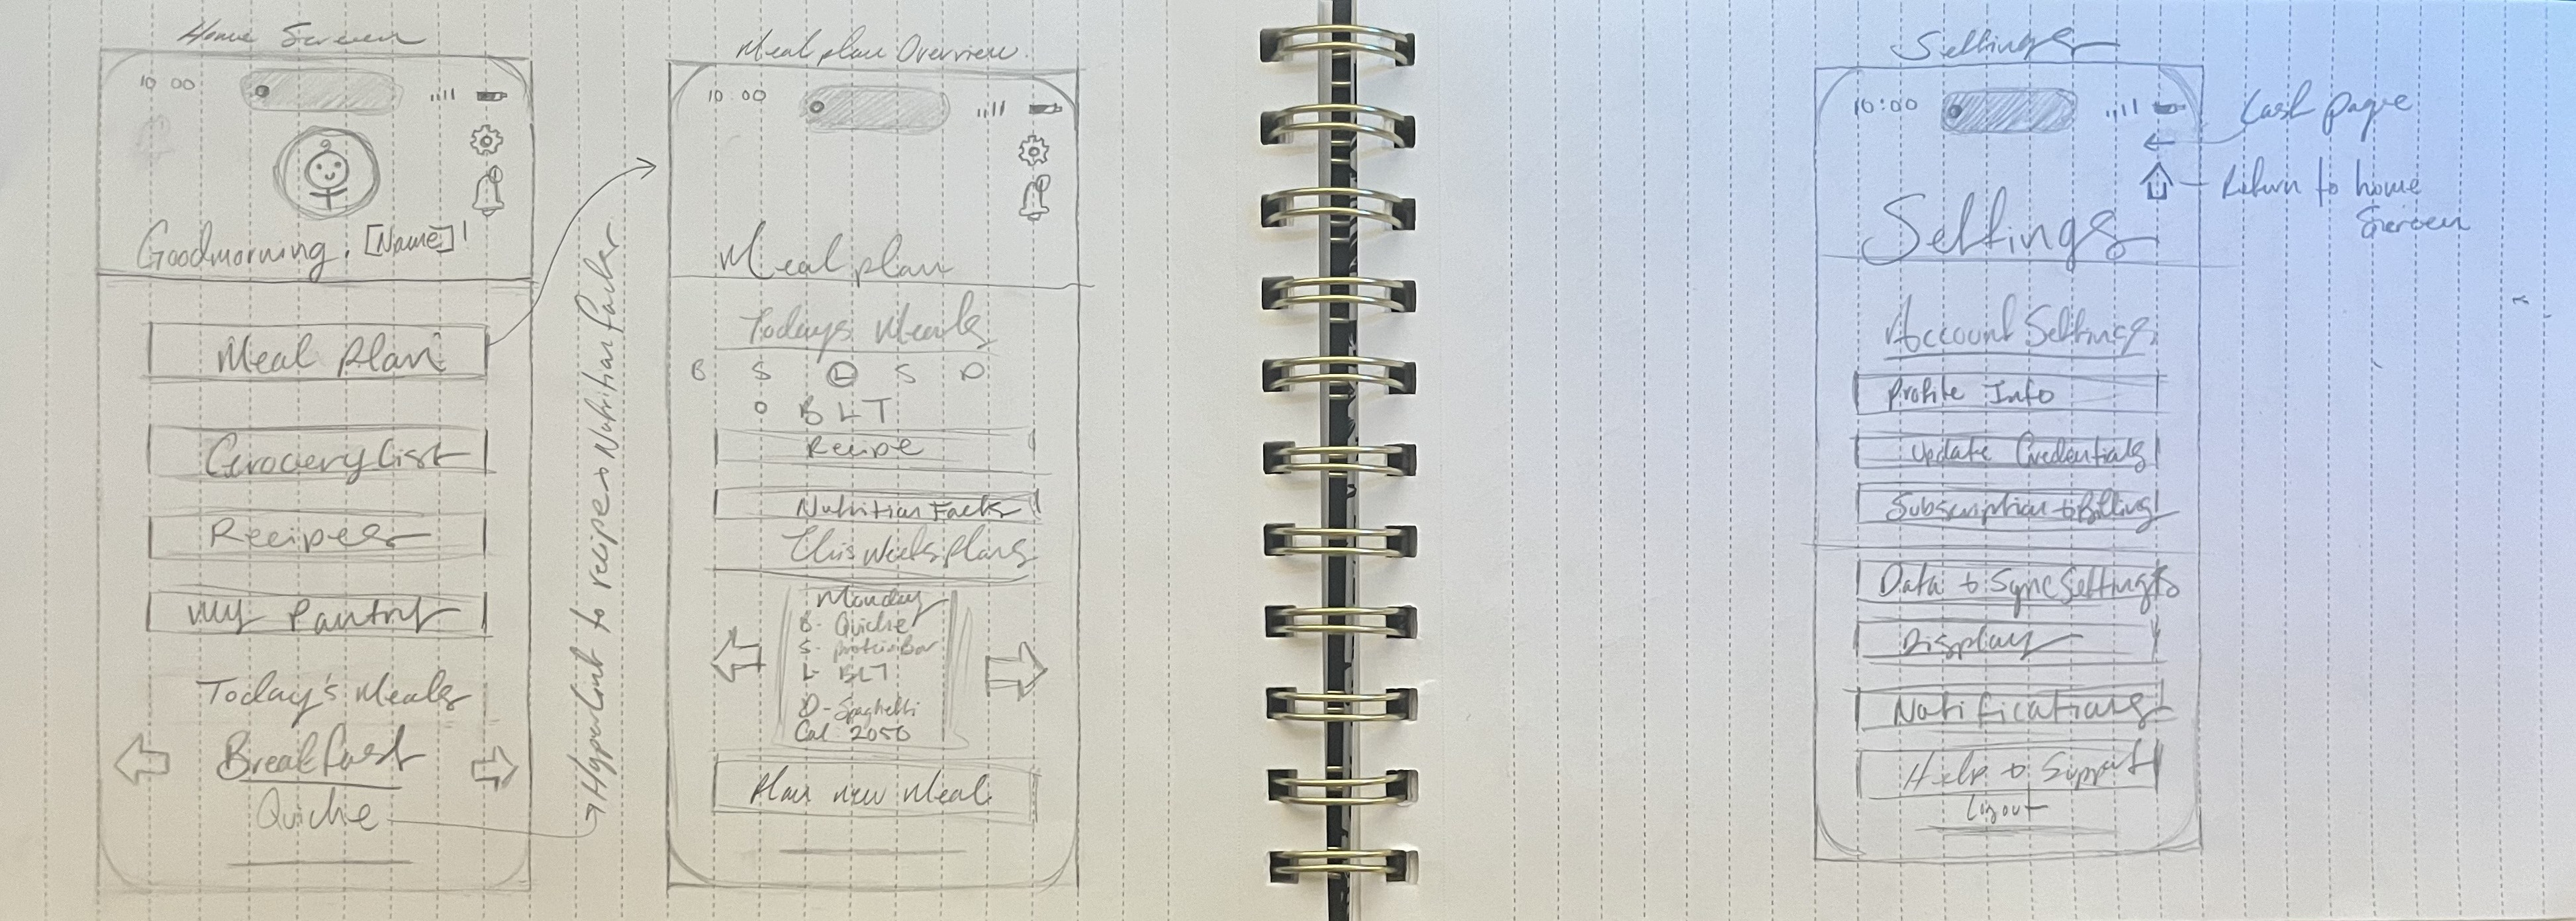 Home Screen
10 00
Goodmorning, [Name]!
Meal Plan
Grocery List
Recipes
My Pantry
Today's Meals
Breakfast
Quiche
Hyperlink to recipe + Nutrition facts
Meal plan Overview
10:00
Meal plan
Todays Meals
B S L S D
BLT
Recipe
Nutrition Facts
This weeks plans
Monday
B- Quiche
S- protein Bar
L- BLT
D- Spaghetti
Cal 2050
Plan new meal
Settings
10:00
Last page
Return to home
Screen
Settings
Account Settings
Profile Info
Update Credentials
Subscription + Billing
Data + Sync Settings
Display
Notifications
Help + Support
Logout